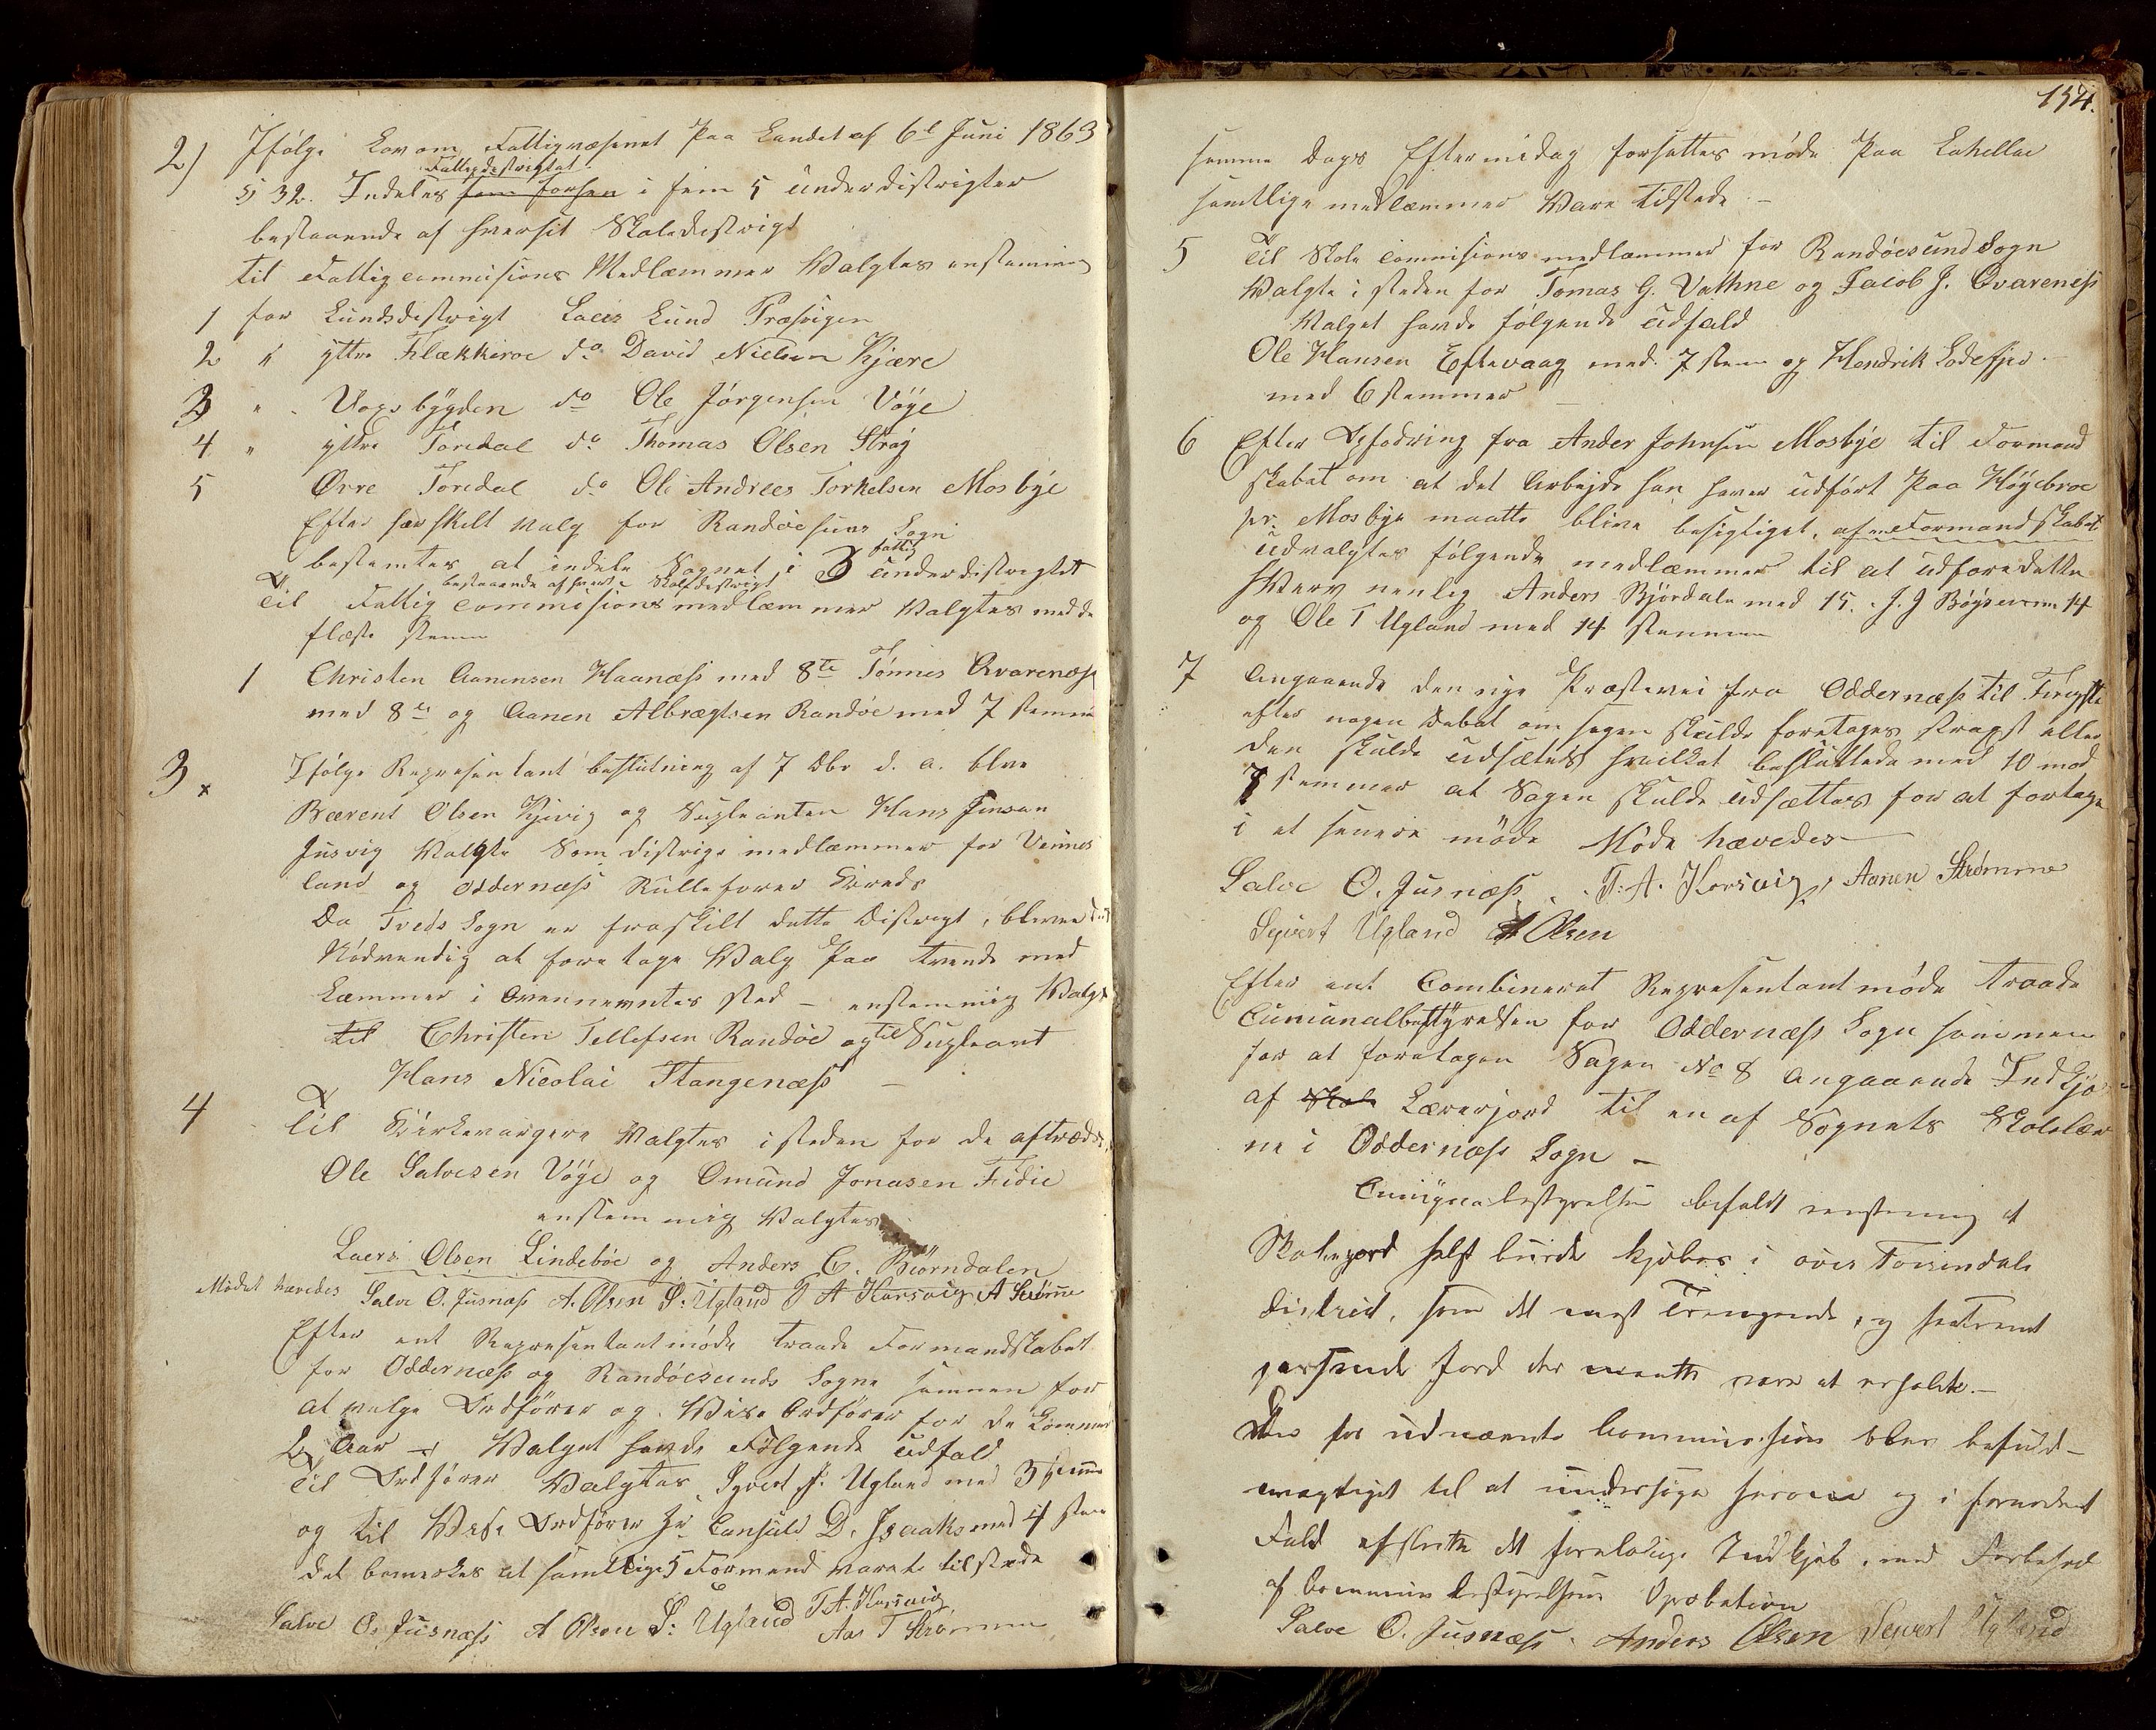 2) Ifølge Lov om Fattigvæsenet Paa Landet af 6t Juni 1863
Fattigdistrigtet
§ 32. Indeles fem 5 underdistrigter
bestaaende af hversit Skoledistrigt
til Fattigcommisions Medlæmmer Walgtes enstemmig
1 for Lundsdistrigt Lars Lund Præsvigen
2 " ÿttre Flækkeroe do David Nielsen Kjære
3 " Vogsbÿgden do Ole Jørgensen Vöÿe
4 " ÿttre Toredal do Thomas Olsen Straÿ
5 Øvre Toredal do Ole Andrees Torkelsen Mosbÿe
Efter særskilt Valg for Randöesuns Sogn
bestemtes at indele Sognet i 3 fattig underdistrigter
bestaaende af hvert Skoledistrigt
Til Fattig Commisions medlæmmer Valgtes med de
fleste stemmer
1 Christen Aanensen Haanæss med 8te Tönnes Qvarenæss
med 8te og Aanen Albregtsen Randöe med 7 stemmer
3 x Ifølge Representant beslutning af 7 Dbr d. a. blev
Bærent Olsen Kjivig og Supleanten Hans Jensen
Jusvig Walgte Som distrigs medlæmmer for Vennes
land og Oddernæss Rulleförer Kreds
Da Tveds Sogn er fraskilt dette Distrigt, blev det
Nödvendig at foretage Walg Paa tvende med
Læmmer i Ovennevntes sted - enstemmig Walgt
til Christen Tellefsen Randöe og til Supleant
Hans Nicolai Stangenæss -
4 Til Kirkevärgere Valgtes i steden for de aftrædende
Ole Salvesen Vöÿe og Omund Jonasen Fidie
enstemmig Valgtes
Laers Olsen Lindeböe og Anders C. Biörndalen
Mödet hævedes Salve O. Jusnæss A. Olsen S: Ugland T A Korsvig A Strömme
Efter ent Representantmöde traade Formandskabet
for Oddernæss og Randöesunds Sogne sammen for
at velge Ordförer og Wise Ordförer for de kommende
2 Aar - Walget havde Følgende udfald
Til Ordförer Valgtes Syvert S. Ugland med 3 stemmer
og til Wise Ordförer Hr Consuld D. Isaaks med 4 stemmer
Det bemærkes at samtlige 5 Formend vare tilstede
Salve O. Jusnæss A Olsen S: Ugland T.A. Korsvig
Aa T Strömme
154.
samme Dags Eftermidag forsattes möde Paa Lahellae
samtlige medlæmmer Ware tilstede -
5 Til Skole Commisions medlæmmer for Randöesund Sogn
Walgte i steden for Tomas G. Vathne og Jacob J. Qvareness
Walget havde følgende udfald
Ole Hansen Eftevaag med 7 stem og Hendrik Lodefjed
med 6 stemmer -
6 Efter Opfodring fra Ander Johnsen Mosbÿe til Formand
skabet om at det Arbejde han haver udført Paa Höÿebroe
pr. Mosbÿe maatte blive besigtiget, af Formandskabet
udvalgtes følgende medlæmmer til at udføre dette
Hverv nemlig Anders Björdale med 15. J. J Böÿsen 14
og Ole T Ugland med 14 stemmer
7 Angaaende den nÿe Præstevei fra Oddernæss til
efter nogen Debat om sagen skulde foretages stragst eller
den skulde udsættes hvilket besluttede med 10 mod
7 stemmer at Sagen skulde udsættes for at foretage
i et senere möde Möde hævedes
Salve O. Jusnæss T. A. Korsvig, Aanen Strömme
Syvert Ugland A Olsen
Efter ent Combineret Representantmöde traade
Cumunalbestÿrelsen for Oddernæss Sogn sammen
for at foretagen Sagen No 8 angaaende Indkjö
af Skole Lærerjord til en af Sognets Skolelær
ne i Oddernæss Sogn -
bestyrelsen befaldt enstemmig at
Skolejord helst burde kjöbes i över Torrendals
District, som det mest Trengende, og
passende Jord der maatte være at erholde. -
Den før udnævnte Commission blev befuld-
mægtiget til at undersöge herom og i fornødent
Fald afslutte det foreløbige Indkjöb, med Forbehold
af bestyrelsens Aprobation
Salve O. Jusnæss. Anders Olsen Seyvert Ugland